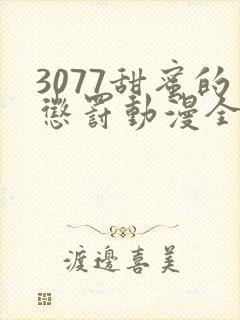 3077甜蜜的
惩罚动漫全
渡邊喜美